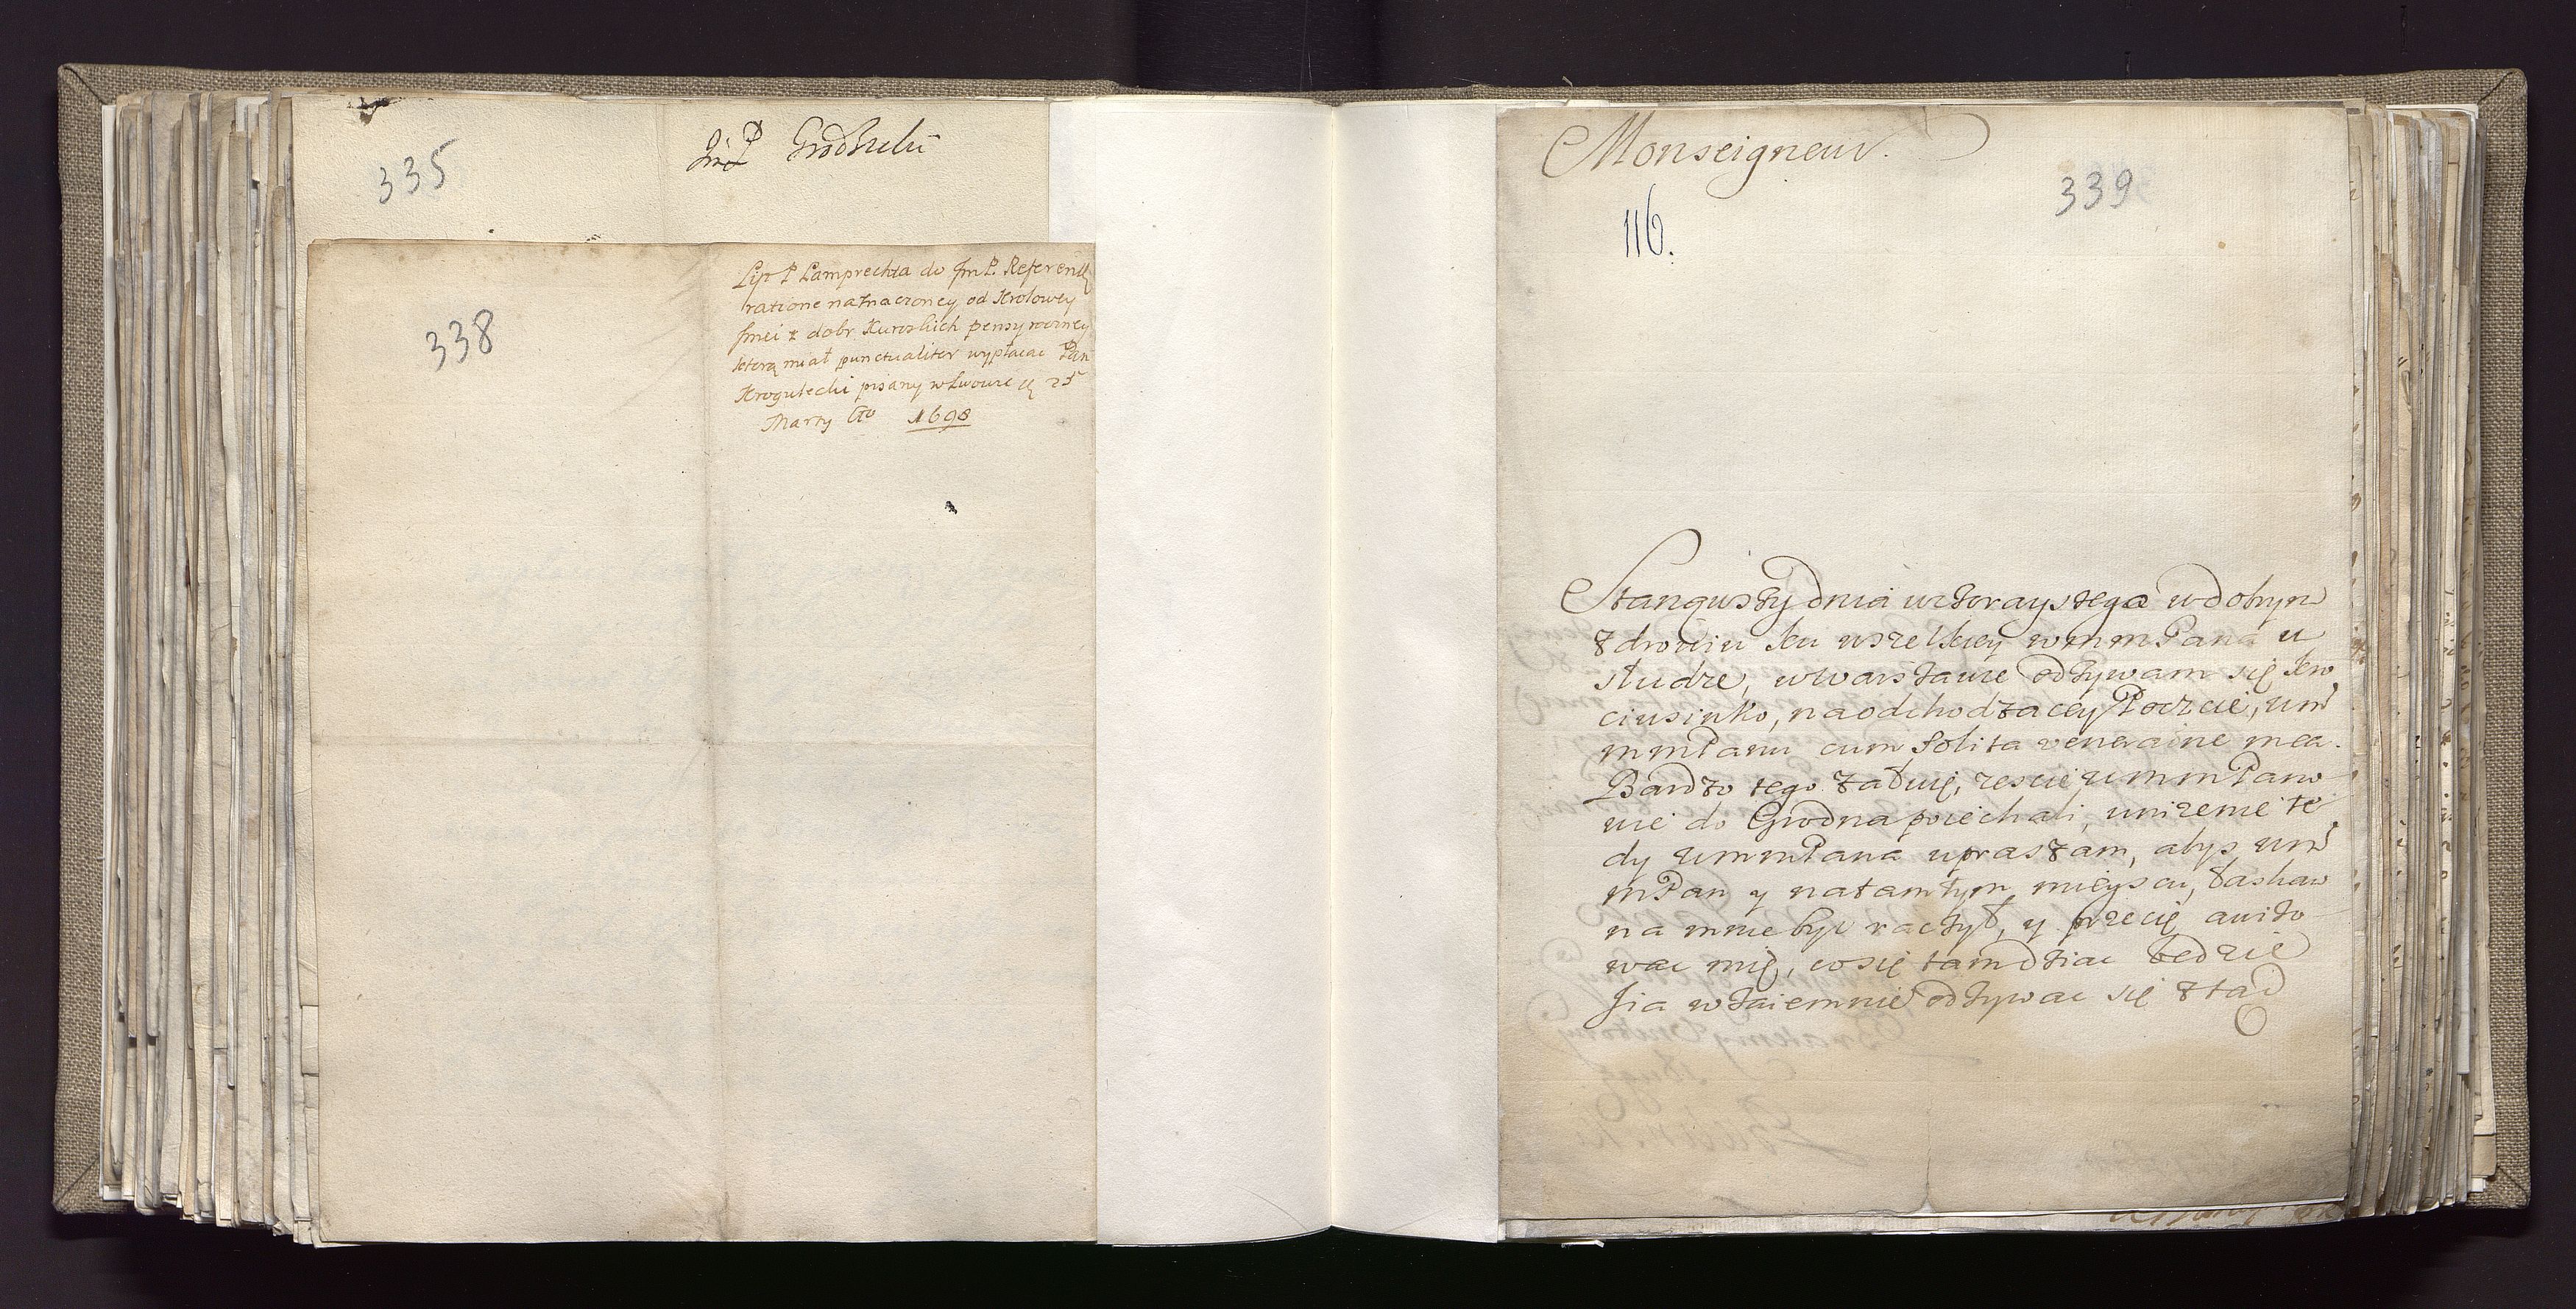 335
JmP Grodzicki
338
List P Lamprechta do Jm P. Referend
ratione naznaczoney od Krolowey
Jmci z dobr Kurowskich pensy roczney
ktorą miał punctualiter wypłacac Pan
Krogulecki pisany w Lwowie d 25
Marty Ao 1698
Monseigneur.
339
116.
Stanąwszy dnia wczorayszego w dobrym
zdrowiu ku wszelkiey wmmPana u
słudze, w Warszawie odzywam się
ciusinko, na odchodzacey Poczcie, wm
mmPanu cum solita veneraine mea.
Bardzo tego załuię, zescie wmmPano
wie do Grodna poiechali, unizenie te
dy wmmPana upraszam, abys wm
mPan y na tamtym mieyscu, łaskaw
na mnie byc raczył, y przecię awizo
wac mię, co się tam dziac bedzie
Jia wzaiemnie odzywac się ztąd